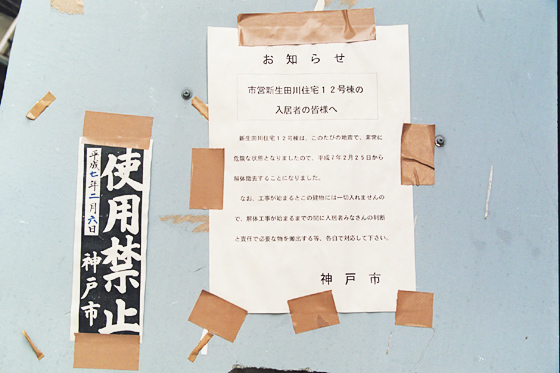 お知らせ
市営新生田川住宅１２号棟の
入居者の皆様へ
新生田川住宅１２号棟は、このたびの地震で、非常に
危険な状態となりましたので、平成７年２月２５日から
解体撤去することになりました。
なお、工事が始まるとこの建物には一切入れませんの
で、解体工事が始まるまでの間に入居者みなさんの判断
と責任で必要な物を搬出する等、各自で対応して下さい。
神戸市
使用禁止
平成七年二月六日
神戸市